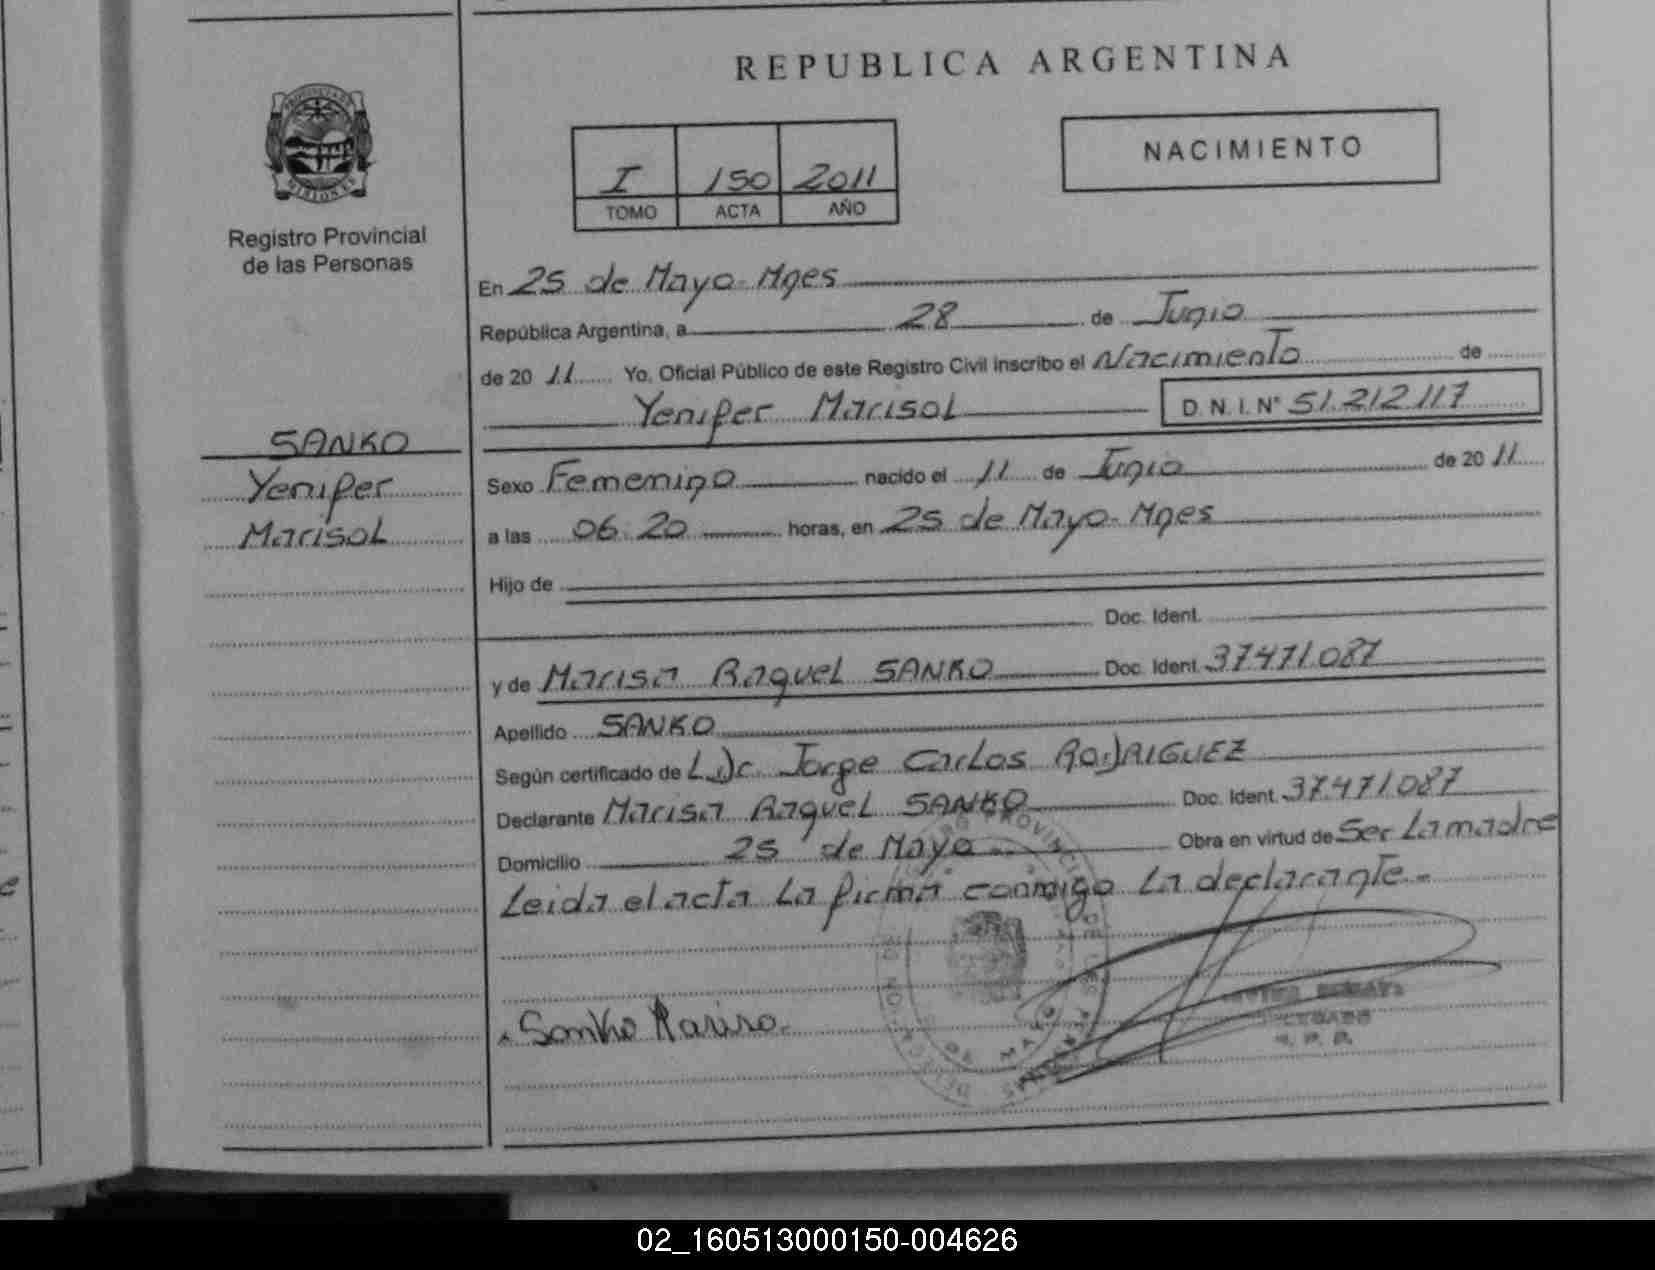 REPUBLICA ARGENTINA
PROVINCIA DE
MISIONES
Registro Provincial
de las Personas
I 150 2011
TOMO ACTA AÑO
NACIMIENTO
En 25 de Mayo - Mnes
República Argentina, a 28 de Junio
de 20 11 Yo, Oficial Público de este Registro Civil inscribo el Nacimiento de
Yenifer Marisol D. N. I. N° 51.212.117
SANKO
Yenifer
Marisol
Sexo Femenino nacido el 11 de Junio de 20 11
a las 06:20 horas, en 25 de Mayo - Mnes
Hijo de
Doc. Ident.
y de Marisa Raquel SANKO Doc. Ident. 37.471.087
Apellido SANKO
Según certificado de Jorge Carlos RODRIGUEZ
Declarante Marisa Raquel SANKO Doc. Ident. 37.471.087
Domicilio 25 de Mayo Obra en virtud de Ser La madre
Leida el acta La firma conmigo La declarante.-
Sanko Marisa
02_160513000150-004626